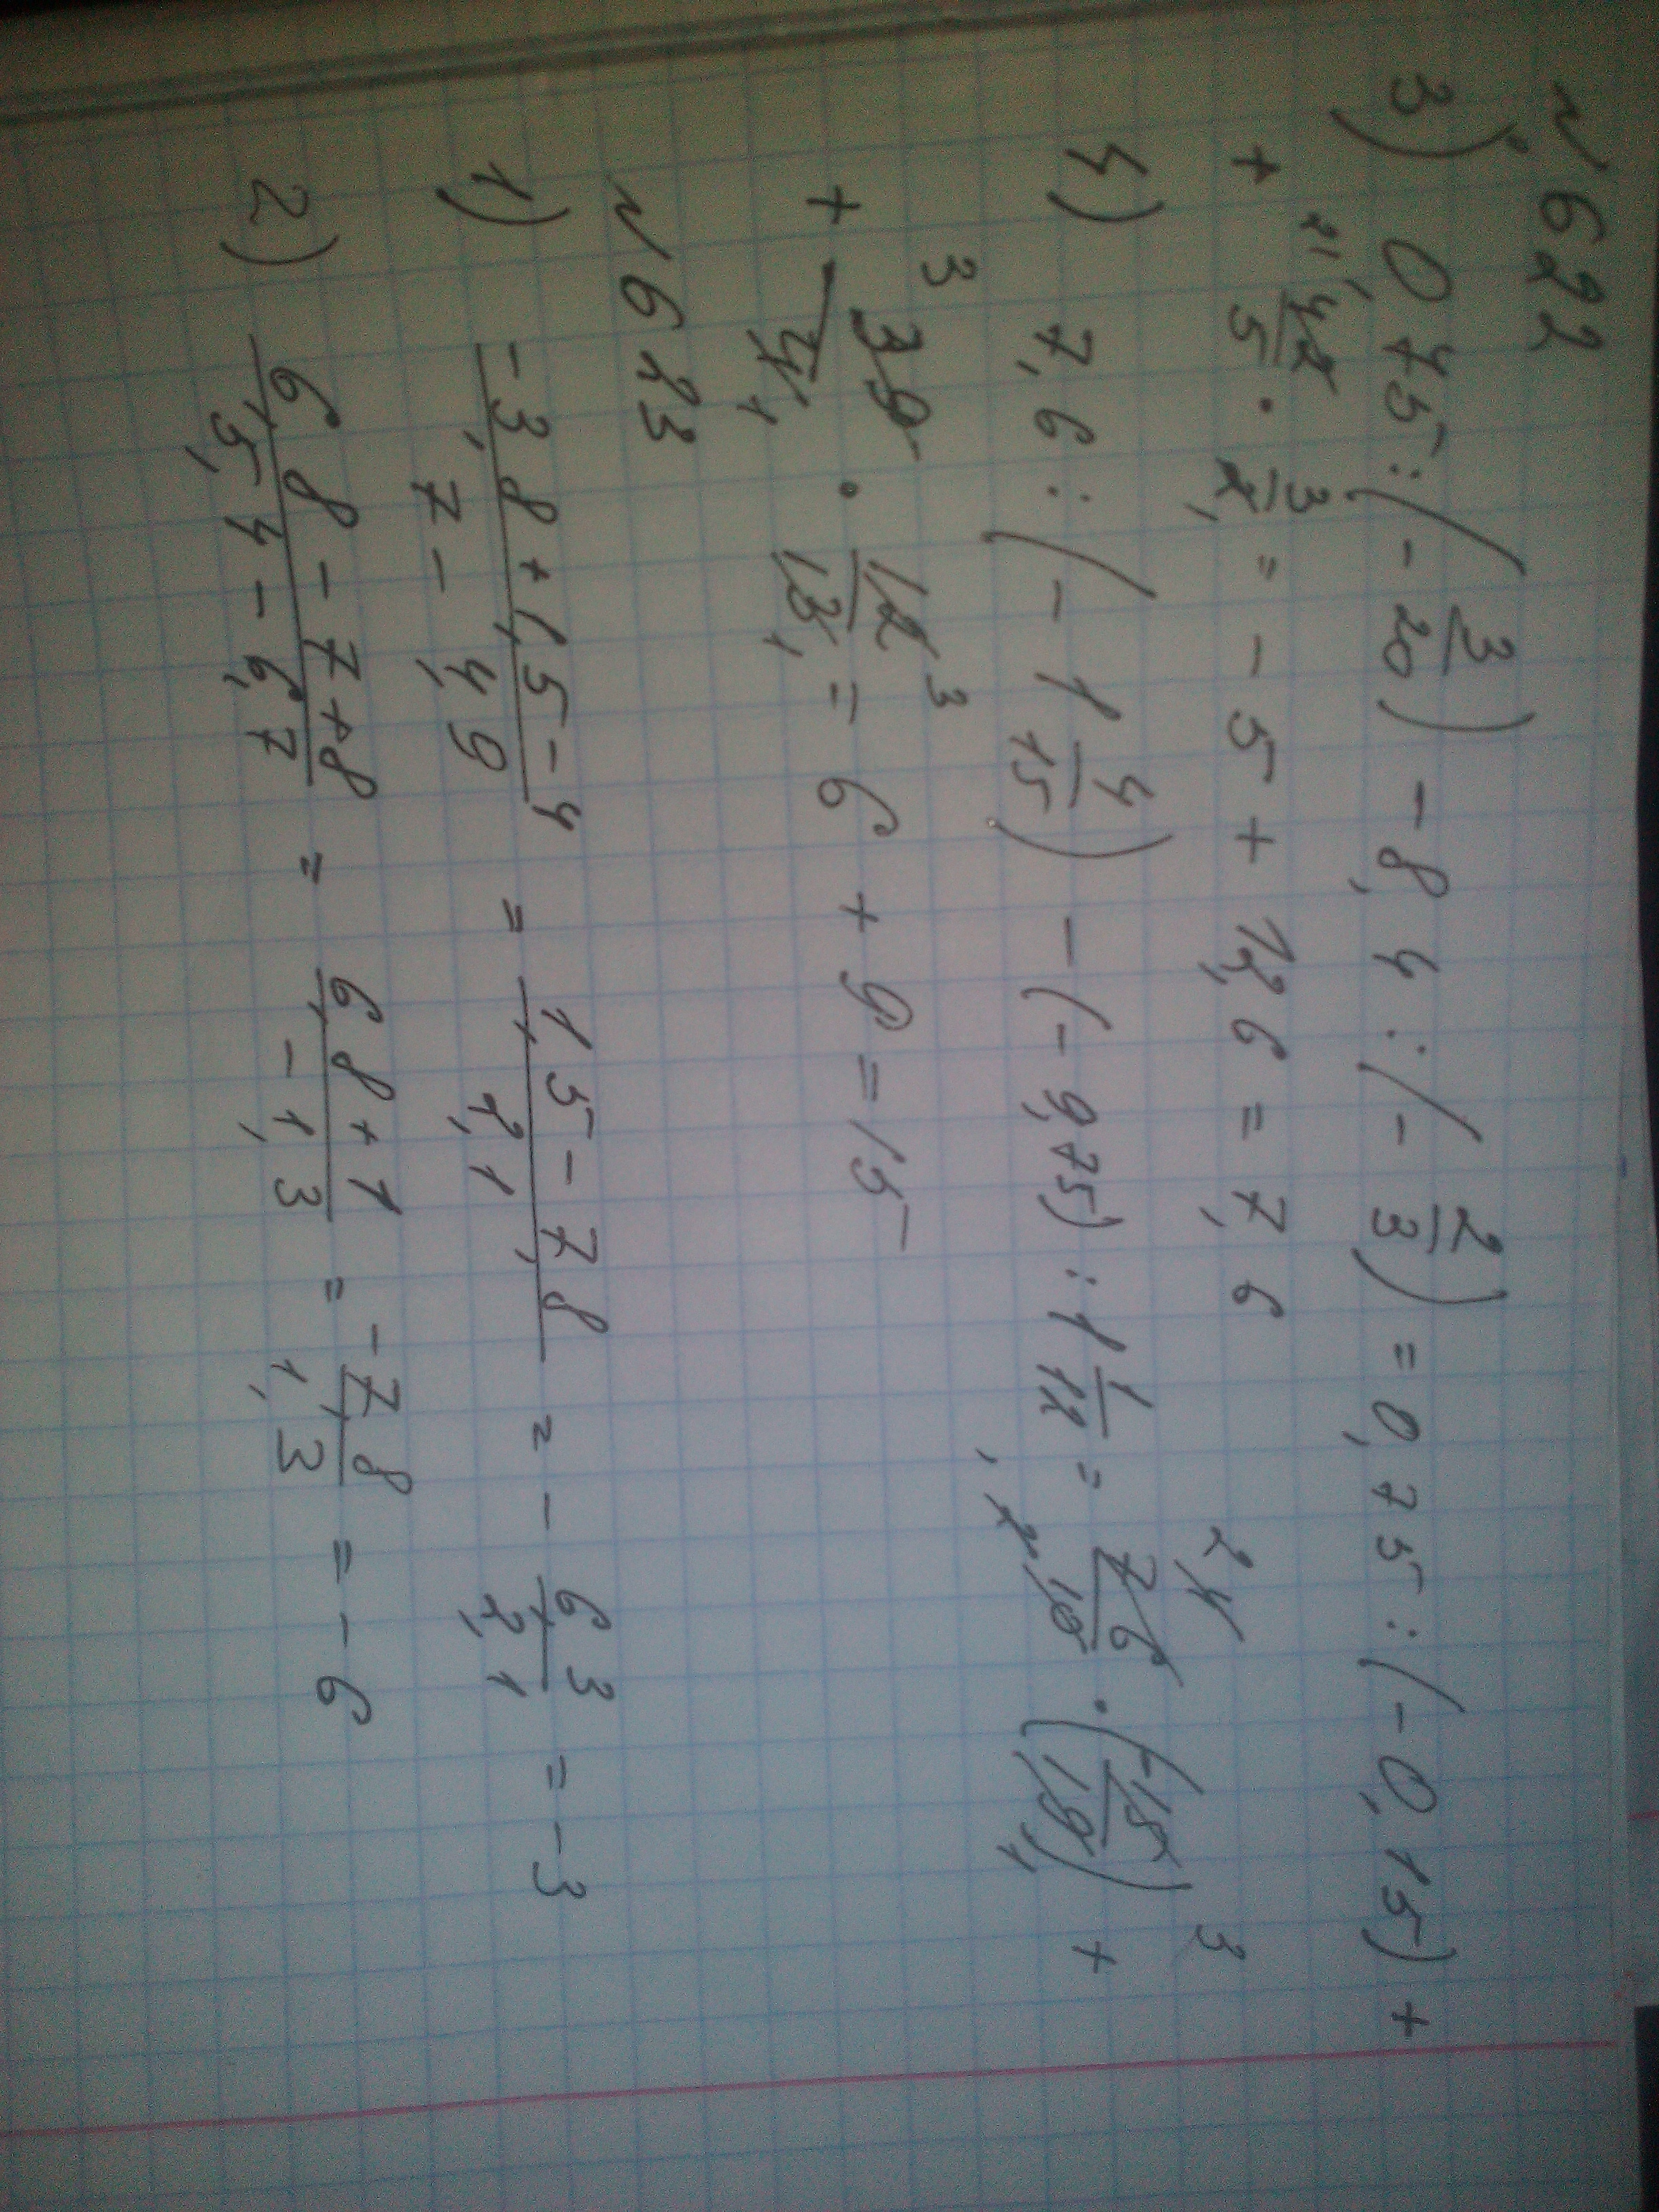 № 622
3) 0,75 : (- 3/20) - 8,4 : (- 2/3) = 0,75 : (-0,15) +
+ 21 42/5 · 3/2 1 = -5 + 12,6 = 7,6
4) 7,6 : (-1 4/15) - (-9,75) : 1 1/12 = 2 4 76/10 2 1 · (-15/19) 3 1 +
+ 3 39/4 1 · 12/13 3 1 = 6 + 9 = 15
№ 623
1) -3,8 + 1,5 - 4 / 7 - 4,9 = 1,5 - 7,8 / 2,1 = - 6,3 / 2,1 = -3
2) 6,8 - 7 + 8 / 5,4 - 6,7 = 6,8 + 1 / -1,3 = - 7,8 / 1,3 = -6